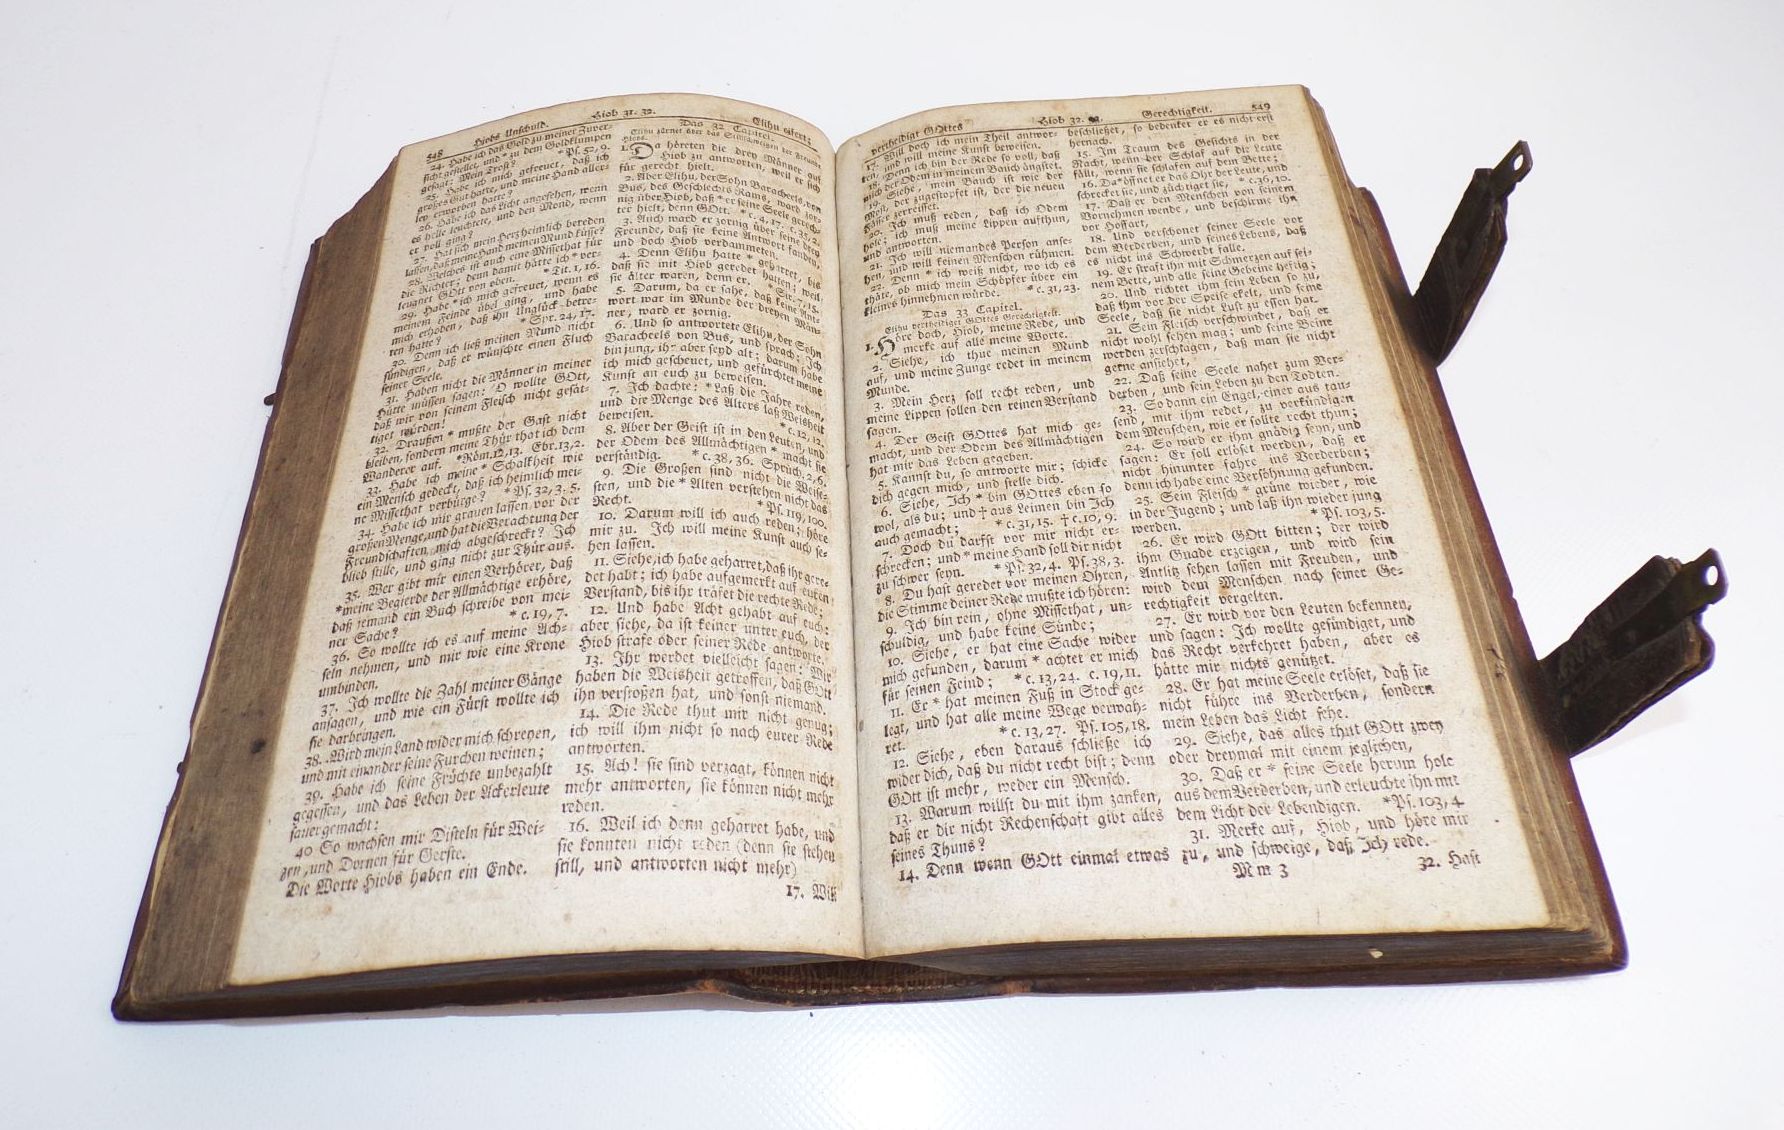 548 Hiobs Unschuld. Hiob 31. 32. Elihu eifert:
24. Habe ich das Gold zu meiner Zuver-
sicht gestellet, und * zu dem Goldklumpen
gesagt: Mein Trost? * Ps. 52, 9.
25. Habe ich mich gefreuet, daß ich
großes Gut hatte, und meine Hand aller-
ley erworben hatte?
26. Habe ich das Licht angesehen, wenn
es helle leuchtete, und den Mond, wenn
er voll ging?
27. Hat sich mein Herz heimlich bereden
lassen, daß meine Hand meinen Mund küsse?
28. Welches ist auch eine Missethat für
die Richter; denn damit hätte ich * ver-
leugnet GOtt von oben. * Tit. 1, 16.
29. Habe * ich mich gefreuet, wenn es
meinem Feinde übel ging, und habe
mich erhoben, daß ihn Unglück betre-
ten hatte? * Spr. 24, 17.
30. Denn ich ließ meinen Mund nicht
sündigen, daß er wünschte einen Fluch
seiner Seele.
31. Haben nicht die Männer in meiner
Hütte müssen sagen: O wollte GOtt,
daß wir von seinem Fleisch nicht gesät-
tiget würden!
32. Draußen * mußte der Gast nicht
bleiben, sondern meine Thür that ich dem
Wanderer auf. * Röm. 12, 13. Ebr. 13, 2.
33. Habe ich meine * Schalkheit wie
ein Mensch gedeckt, daß ich heimlich mei-
ne Missethat verbürge? * Ps. 32, 3. 5.
34. Habe ich mir grauen lassen vor der
großen Menge, und hat die Verachtung der
Freundschaften mich abgeschreckt? Ich
blieb stille, und ging nicht zur Thür aus.
35. Wer gibt mir einen Verhörer, daß
* meine Begierde der Allmächtige erhöre,
daß jemand ein Buch schreibe von mei-
ner Sache? * c. 19, 7.
36. So wollte ich es auf meine Ach-
seln nehmen, und mir wie eine Krone
umbinden.
37. Ich wollte die Zahl meiner Gänge
ansagen, und wie ein Fürst wollte ich
sie darbringen.
38. Wird mein Land wider mich schreyen,
und mit einander seine Furchen weinen;
39. Habe ich seine Früchte unbezahlt
gegessen, und das Leben der Ackerleute
sauer gemacht:
40 So wachsen mir Disteln für Wei-
zen, und Dornen für Gerste.
Die Worte Hiobs haben ein Ende.
Das 32 Capitel.
Elihu zürnet über das Stillschweigen der Freunde
Hiobs.
1. Da höreten die drey Männer auf
Hiob zu antworten, weil er sich
für gerecht hielt.
2. Aber Elihu, der Sohn Baracheels, von
Bus, des Geschlechts Rams, ward zor-
nig über Hiob, daß * er seine Seele gerech-
ter hielt, denn GOtt. * c. 4, 17. c. 35, 2.
3. Auch ward er zornig über seine drey
Freunde, daß sie keine Antwort fanden,
und doch Hiob verdammeten.
4. Denn Elihu hatte * geharret, bis
daß sie mit Hiob geredet hatten; weil
sie älter waren, denn er. * Sir. 7, 15.
5. Darum, da er sahe, daß keine Ant-
wort war im Munde der dreyen Män-
ner, ward er zornig.
6. Und so antwortete Elihu, der Sohn
Baracheels von Bus, und sprach: Ich
bin jung, ihr aber seyd alt; darum habe
ich mich gescheuet, und gefürchtet meine
Kunst an euch zu beweisen.
7. Ich dachte: * Laß die Jahre reden,
und die Menge des Alters laß Weisheit
beweisen. * c. 12, 12.
8. Aber der Geist ist in den Leuten, und
der Odem des Allmächtigen * macht sie
verständig. * c. 38, 36. Sprüch. 2, 6.
9. Die Großen sind nicht die Weise-
sten, und die * Alten verstehen nicht das
Recht. * Ps. 119, 100.
10. Darum will ich auch reden; höre
mir zu. Ich will meine Kunst auch se-
hen lassen.
11. Siehe, ich habe geharret, daß ihr gere-
det habt; ich habe aufgemerkt auf euren
Verstand, bis ihr träfet die rechte Rede;
12. Und habe Acht gehabt auf euch:
aber siehe, da ist keiner unter euch, der
Hiob strafe oder seiner Rede antworte.
13. Ihr werdet vielleicht sagen: Wir
haben die Weisheit getroffen, daß GOtt
ihn verstoßen hat, und sonst niemand.
14. Die Rede thut mir nicht genug;
ich will ihm nicht so nach eurer Rede
antworten.
15. Ach! sie sind verzagt, können nicht
mehr antworten, sie können nicht mehr
reden.
16. Weil ich denn geharret habe, und
sie konnten nicht reden (denn sie stehen
still, und antworten nicht mehr)
17. Will
vertheidigt GOttes Hiob 32. Gerechtigkeit. 549
17. Will doch ich mein Theil antwor-
ten, und will meine Kunst beweisen.
18. Denn ich bin der Rede so voll, daß
mich der Odem in meinem Bauch ängstet.
19. Siehe, mein Bauch ist wie der
Most, der zugestopfet ist, der die neuen
Fässer zerreisset.
20. Ich muß reden, daß ich Odem
hole; ich muß meine Lippen aufthun,
und antworten.
21. Ich will niemandes Person anse-
hen, und will keinen Menschen rühmen.
22. Denn * ich weiß nicht, wo ich es
thäte, ob mich mein Schöpfer über ein
kleines hinnehmen würde. * c. 31, 23.
Das 33 Capitel.
Elihu vertheidiget GOttes Gerechtigkeit.
1. Höre doch, Hiob, meine Rede, und
merke auf alle meine Worte.
2. Siehe, ich thue meinen Mund
auf, und meine Zunge redet in meinem
Munde.
3. Mein Herz soll recht reden, und
meine Lippen sollen den reinen Verstand
sagen.
4. Der Geist GOttes hat mich ge-
macht, und der Odem des Allmächtigen
hat mir das Leben gegeben.
5. Kannst du, so antworte mir; schicke
dich gegen mich, und stelle dich.
6. Siehe, Ich * bin GOttes eben so
wol, als du; und † aus Leimen bin Ich
auch gemacht; * c. 31, 15. † c. 10, 9.
7. Doch du darfst vor mir nicht er-
schrecken; und * meine Hand soll dir nicht
zu schwer seyn. * Ps. 32, 4. Ps. 38, 3.
8. Du hast geredet vor meinen Ohren,
die Stimme deiner Rede mußte ich hören:
9. Ich bin rein, ohne Missethat, un-
schuldig, und habe keine Sünde;
10. Siehe, er hat eine Sache wider
mich gefunden, darum * achtet er mich
für seinen Feind; * c. 13, 24. c. 19, 11.
11. Er * hat meinen Fuß in Stock ge-
legt, und hat alle meine Wege verwah-
ret. * c. 13, 27. Ps. 105, 18.
12. Siehe, eben daraus schließe ich
wider dich, daß du nicht recht bist; denn
GOtt ist mehr, weder ein Mensch.
13. Warum willst du mit ihm zanken,
daß er dir nicht Rechenschaft gibt alles
seines Thuns?
14. Denn wenn GOtt einmal etwas
beschließet, so bedenket er es nicht erst
hernach.
15. Im Traum des Gesichts in der
Nacht, wenn der Schlaf auf die Leute
fällt, wenn sie schlafen auf dem Bette;
16. Da * öffnet er das Ohr der Leute, und
schrecket sie, und züchtiget sie, * c. 36, 10.
17. Daß er den Menschen von seinem
Vornehmen wende, und beschirme ihn
vor Hoffart,
18. Und verschonet seiner Seele vor
dem Verderben, und seines Lebens, daß
es nicht ins Schwerdt falle.
19. Er straft ihn mit Schmerzen auf sei-
nem Bette, und alle seine Gebeine heftig;
20. Und richtet ihm sein Leben so zu,
daß ihm vor der Speise ekelt, und seine
Seele, daß sie nicht Lust zu essen hat.
21. Sein Fleisch verschwindet, daß er
nicht wohl sehen mag; und seine Beine
werden zerschlagen, daß man sie nicht
gerne ansiehet,
22. Daß seine Seele nahet zum Ver-
derben, und sein Leben zu den Todten.
23. So dann ein Engel, einer aus tau-
send, mit ihm redet, zu verkündigen
dem Menschen, wie er solle recht thun;
24. So wird er ihm gnädig seyn, und
sagen: Er soll erlöset werden, daß er
nicht hinunter fahre ins Verderben;
denn ich habe eine Versöhnung gefunden.
25. Sein Fleisch * grüne wieder, wie
in der Jugend; und laß ihn wieder jung
werden. * Ps. 103, 5.
26. Er wird GOtt bitten; der wird
ihm Gnade erzeigen, und wird sein
Antlitz sehen lassen mit Freuden, und
wird dem Menschen nach seiner Ge-
rechtigkeit vergelten.
27. Er wird vor den Leuten bekennen,
und sagen: Ich wollte gesündiget, und
das Recht verkehret haben, aber es
hätte mir nichts genützet.
28. Er hat meine Seele erlöset, daß sie
nicht führe ins Verderben, sondern
mein Leben das Licht sehe.
29. Siehe, das alles thut GOtt zwey
oder dreymal mit einem jeglichen,
30. Daß er * seine Seele herum hole
aus dem Verderben, und erleuchte ihn mit
dem Licht der Lebendigen. * Ps. 103, 4
31. Merke auf, Hiob, und höre mir
zu, und schweige, daß Ich rede.
M m 3 32. Hast